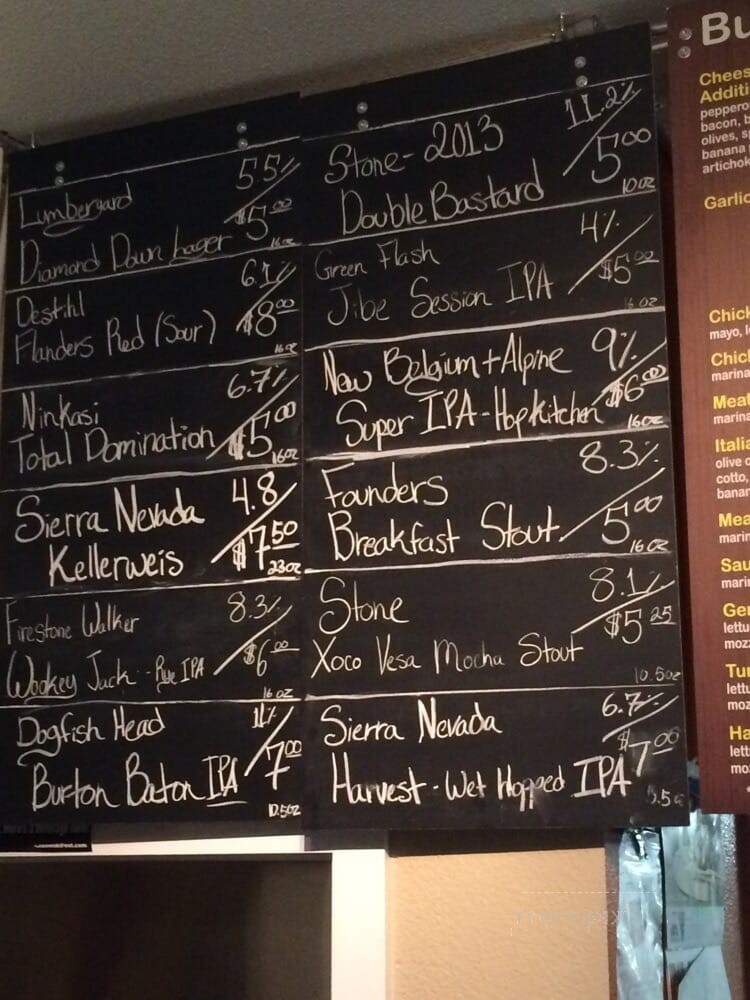 Lumberyard 5.5%
Diamond Down Lager $5.00
16oz
Destihl 6.1%
Flanders Red (Sour) $8.00
16oz
Ninkasi 6.7%
Total Domination $5.00
16oz
Sierra Nevada 4.8
Kellerweis $7.50
23oz
Firestone Walker 8.3%
Wookey Jack - Rye IPA $6.00
16oz
Dogfish Head 11%
Burton Baton IPA 7.00
10.5oz
Stone - 2013 11.2%
Double Bastard 5.00
10oz
Green Flash 4%
Jibe Session IPA $5.00
16oz
New Belgium + Alpine 9%
Super IPA - Hop Kitchen $6.00
16oz
Founders 8.3%
Breakfast Stout 5.00
16oz
Stone 8.1%
Xoco Vesa Mocha Stout $5.25
10.5oz
Sierra Nevada 6.7%
Harvest - Wet Hopped IPA $7.00
Bu
Chees
Additi
peppero
bacon, b
olives, s
banana
artichok
Garlic
Chick
mayo, l
Chick
marina
Meat
marina
Italia
olive o
cotto,
banan
Mea
marin
Sau
marin
Ger
lettu
moz
Tur
lettu
moz
Ha
lett
moz